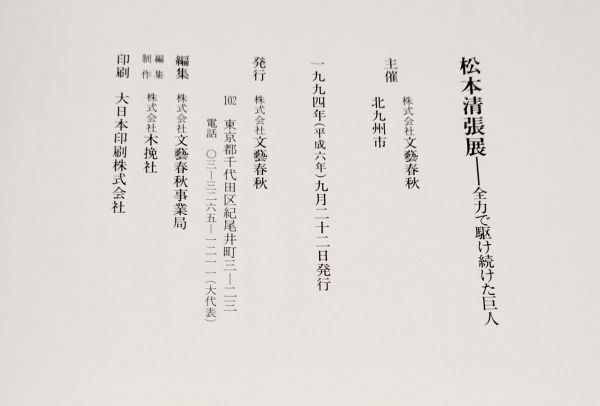 松本清張展――全力で駆け続けた巨人
主催 株式会社文藝春秋
北九州市
一九九四年(平成六年)九月二十二日発行
発行 株式会社文藝春秋
102 東京都千代田区紀尾井町三―二三
電話 〇三―三二六五―一二一一(大代表)
編集 株式会社文藝春秋事業局
編集制作 株式会社木挽社
印刷 大日本印刷株式会社